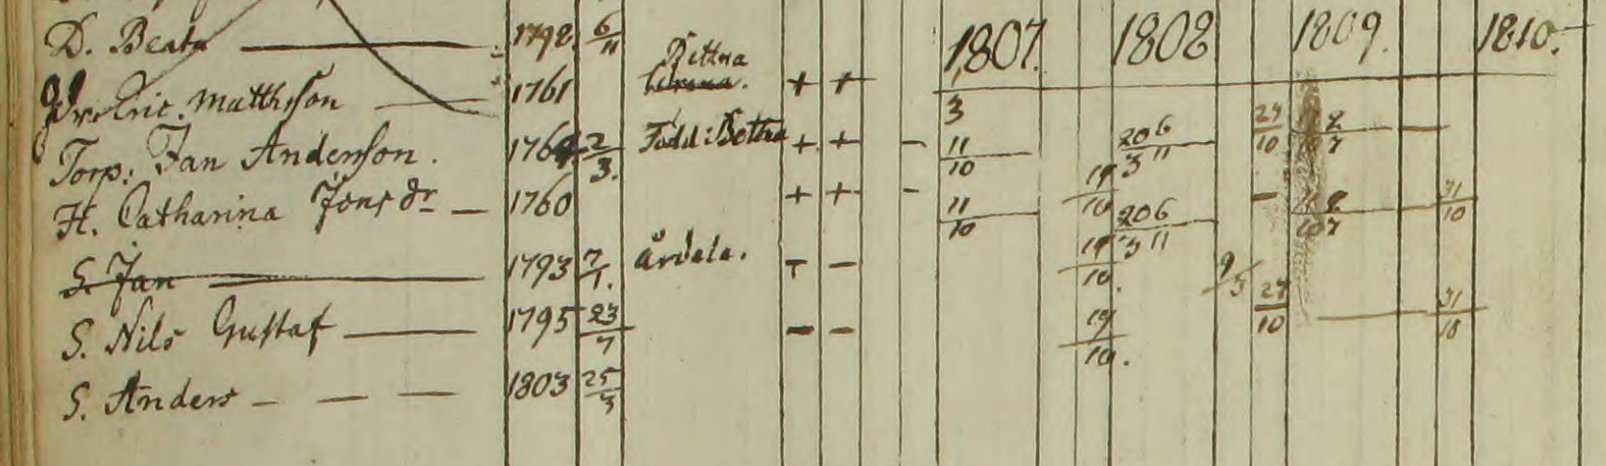 D. Beata 1798 6/11 1807. 1808 1809. 1810.
Eric. Matthson 1761 Bettna + +
Torp: Jan Anderson. 1764 2/3. Född: Bettna + + - 11/10 206/3 11 24/10
H. Catharina Jons dr 1760 + + - 11/10 19/10 206/3 11 - 31/10
S. Jan 1793 7/1. Årdala. - - 19/10. 9/3
S. Nils Gustaf 1795 23/7 - - 19/10. 24/10 31/10
S. Anders 1803 25/3